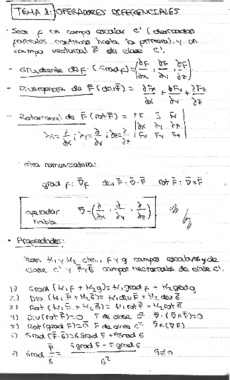 TEMA 1: OPERADORES DIFERENCIALES
- Sea f un campo escalar C¹ (derivadas
parciales continuas hasta la primera), y un
campo vectorial F de clase C¹.
- Gradiente de f (grad f) = (∂f/∂x ; ∂f/∂y ; ∂f/∂z)
- Divergencia de F (div F) = ∂F₁/∂x + ∂F₂/∂y + ∂F₃/∂z
- Rotacional de F (rot F) =
- otra nomenclatura:
grad f = ∇f div F = ∇·F rot F = ∇×F
operador nabla ∇ = (∂/∂x ; ∂/∂y ; ∂/∂z)
• Propiedades:
Sean K₁ y K₂ ctes., f y g campos escalares de
clase C¹ y F y G campos vectoriales de clase C¹.
1) Grad (K₁f + K₂g) = K₁ grad f + K₂ grad g
2) Div (K₁F + K₂G) = K₁ div F + K₂ div G
3) Rot (K₁F + K₂G) = K₁ rot F + K₂ rot G
4) Div (rot F) = 0 F de clase C² ∇·(∇×F) = 0
5) Rot (grad f) = 0 f de clase C² ∇×(∇f)